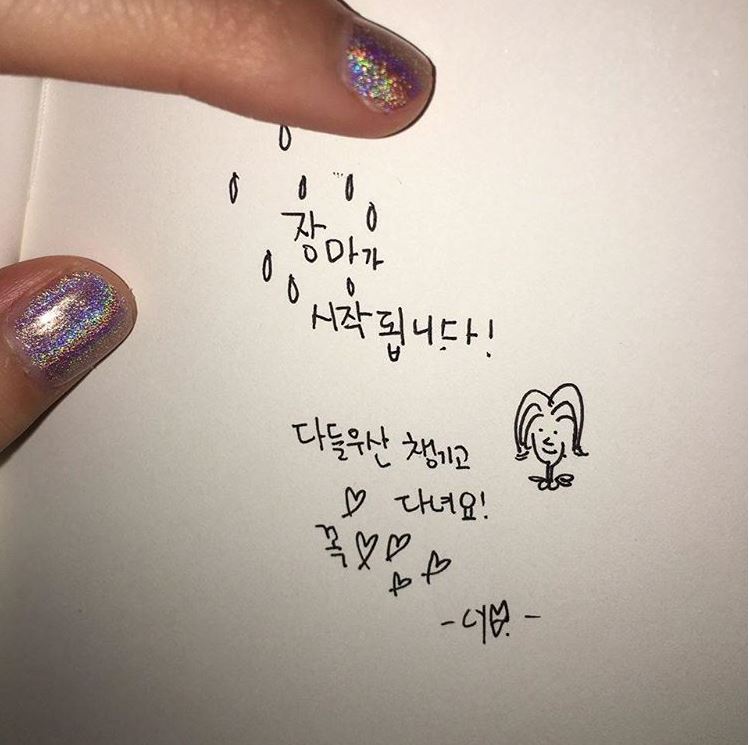 장마가
시작됩니다!
다들우산 챙기고
다녀요!
꼭
-cy